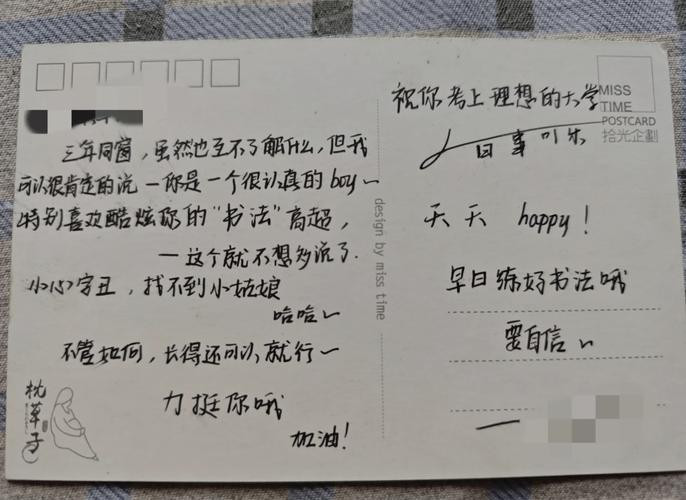 三年同窗，虽然也互不了解什么，但我
可以很肯定的说一你是一个很认真的boy～
特别喜欢酷炫你的“书法”高超，
一这个就不想多说了.
小心字丑，找不到小姑娘
哈哈～
不管如何，长得还可以就行～
力挺你哦
加油！
枕草子
design by miss time
MISS
TIME
POSTCARD
拾光企劃
祝你考上理想的大学
天天 happy！
早日练好书法哦
要自信～